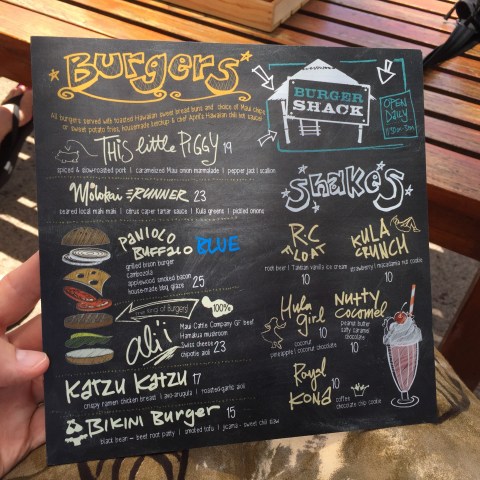 Burgers
All burgers served with toasted Hawaiian sweet bread buns and choice of Maui chips
or sweet potato fries, housemade ketchup & chef April's Hawaiian chili lee sauce
THIS little PiGGY 19
spiced & slow-roasted pork | caramelized Maui onion marmalade | pepper jack | scallion
Molokai RUNNER 23
seared local mahi mahi | citrus caper tartar sauce | Kula greens | pickled onions
PANiOLO
BUFFALO BLUE
grilled bison burger
cambozola
applewood smoked bacon
house-made bbq glaze 25
King of Burgers!
100%
Ali'i
Maui Cattle Company GF beef
Hamakua mushroom
Swiss cheese
chipotle aioli 23
KATZU KATZU 17
crispy ramen chicken breast | arugula | roasted-garlic aioli
BIKINI BURGER 15
black bean - beet root patty | smoked tofu | jicama - sweet chili slaw
BURGER
SHACK
OPEN
DAILY
shakes
R.C
FLOAT
root beer | Tahitian vanilla ice cream
10
KULA
CRUNCH
strawberry | macadamia nut cookie
10
Hula
girl 10
coconut
pineapple | coconut chocolate
Nutty
Cocomel
peanut butter
salty caramel
chocolate
10
Royal
KONA 10
coffee
chocolate chip cookie